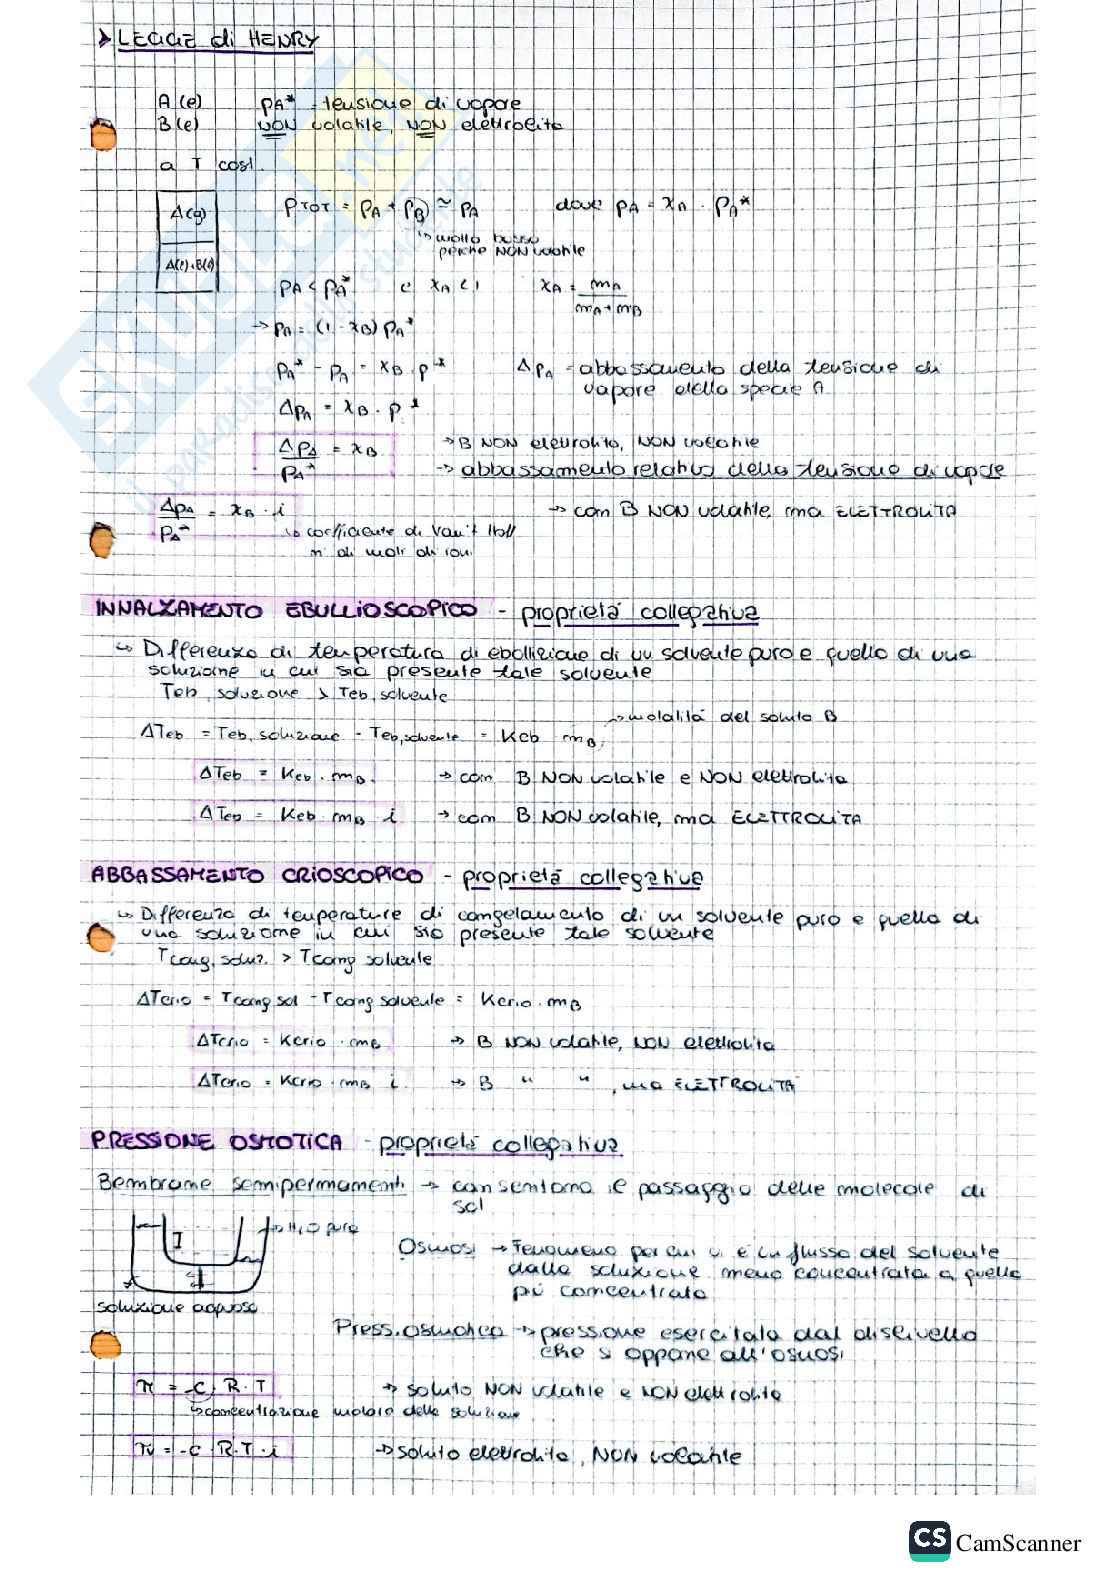 > LEGGE di HENRY
A(l) pA* = tensione di vapore
B(l) NON volatile, NON elettrolita
a T cost.
A(g)
A(l)+B(l)
PTOT = PA + PB ≃ PA dove PA = XA · PA*
↳ molto basso
perché NON volatile
PA < PA* e XA < 1 XA = mA / mA+mB
→ PA = (1 - XB) PA*
PA* - PA = XB · P* ΔPA = abbassamento della tensione di
vapore della specie A
ΔPA = XB · P*
ΔPA / PA* = XB → B NON elettrolito, NON volatile
→ abbassamento relativo della tensione di vapore
ΔPA / PA* = XB · i → con B NON volatile, ma ELETTROLITA
↳ coefficiente di Van't Hoff
n° di moli di ioni
INNALZAMENTO EBULLIOSCOPICO - proprietà collegativa
↳ Differenza di temperatura di ebollizione di un solvente puro e quello di una
soluzione in cui sia presente tale solvente
Teb, soluzione > Teb, solvente
→ molalità del soluto B
ΔTeb = Teb, soluzione - Teb, solvente = Keb mB
ΔTeb = Keb · mB. → con B NON volatile e NON elettrolita
ΔTeb = Keb mB i → con B NON volatile, ma ELETTROLITA
ABBASSAMENTO CRIOSCOPICO - proprietà collegativa
↳ Differenza di temperature di congelamento di un solvente puro e quella di
una soluzione in cui sia presente tale solvente
Tcong, soluz. > Tcong solvente
ΔTcrio = Tcong sol - Tcong solvente = Kcrio · mB
ΔTcrio = Kcrio · mB → B NON volatile, NON elettrolita
ΔTcrio = Kcrio · mB i → B " " , ma ELETTROLITA
PRESSIONE OSMOTICA - proprietà collegativa
Bembrane semipermamenti → consentono il passaggio delle molecole di
sol
→ H2O pura
soluzione acquosa
Osmosi → Fenomeno per cui vi è un flusso del solvente
dalla soluzione meno concentrata a quella
più concentrata
Press. osmotica → pressione esercitata dal dislivello
che si oppone all'osmosi
π = -C R · T → soluto NON volatile e NON elettrolita
↳ concentrazione molare della soluzione
π = -C R·T · i → soluto elettrolita, NON volatile
CS CamScanner